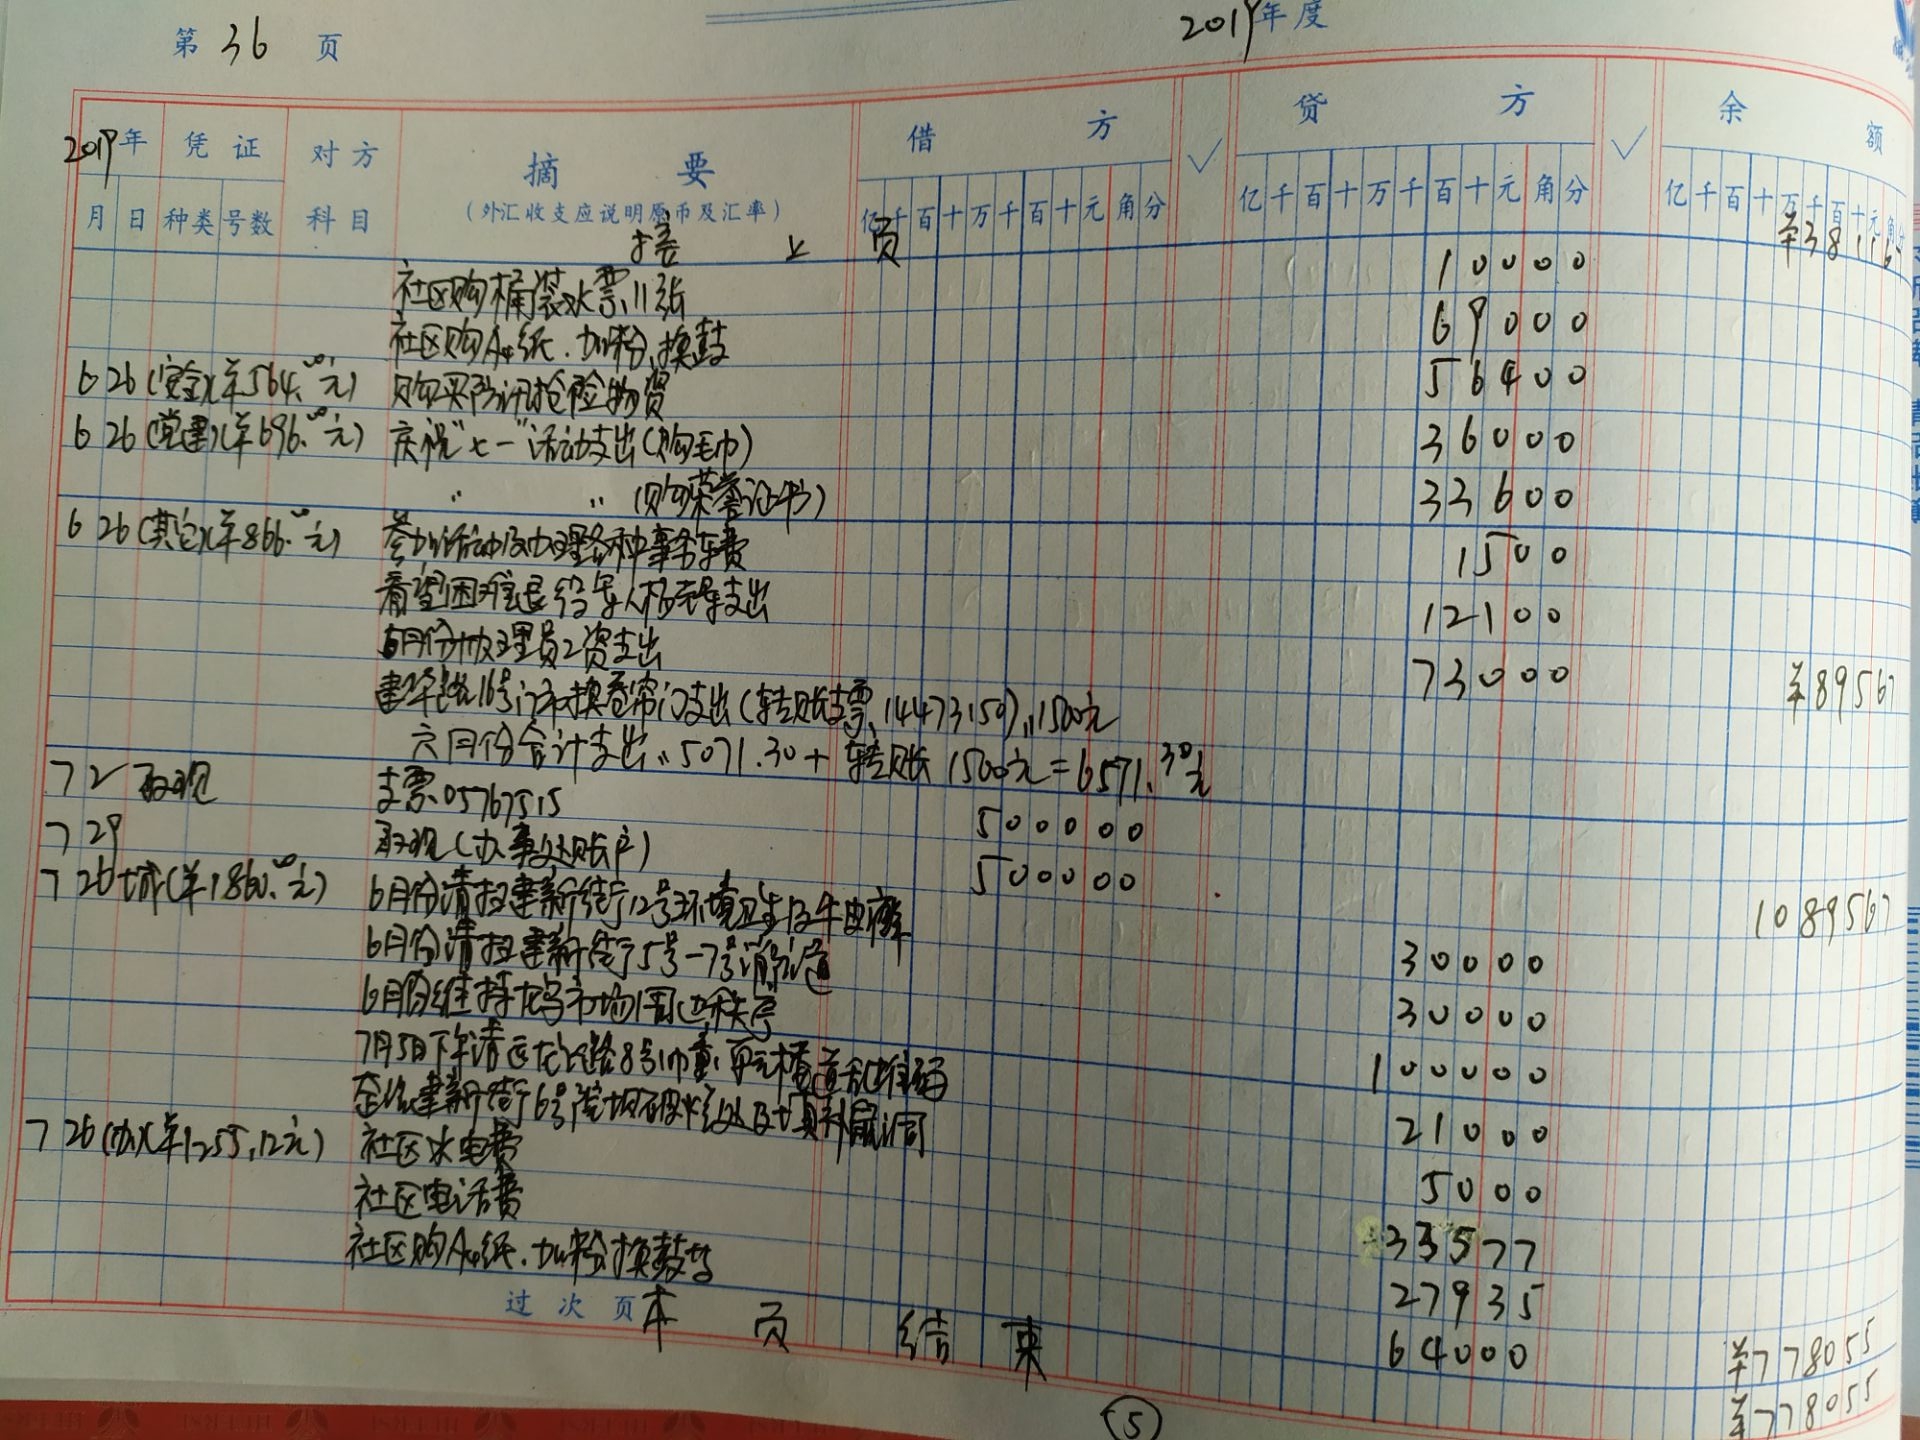 第 36 页
2019年度
2019年 凭证 对方 摘要 借方 ✓ 贷方 ✓ 余额
月 日 种类 号数 科目 (外汇收支应说明原币及汇率) 亿千百十万千百十元角分 亿千百十万千百十元角分 亿千百十万千百十元角分
接 上 页 ¥38116
社区购桶装水票11张 10000
社区购A4纸、加粉、换鼓 69000
6 26 (安全)(¥564.00元) 购买防汛抢险物资 56400
6 26 (党建)(¥696.00元) 庆祝"七一"活动支出(购毛巾) 36000
" " (购荣誉证书) 33600
6 26 (其它)(¥866.00元) 参加活动及办理各种事务车费 1500
看望困难退役军人杨 支出 12100
5月份协理员工资支出 73000 ¥89567
建华路16号门市换卷帘门支出(转账支票14473150)1500元
六月份合计支出:5071.30+转账1500元=6571.30元
7 2 取现 支票05767515 500000
7 29 取现(办事处账户) 500000 1089567
7 26 城(¥1860.00元) 6月份清扫建新街12号环境卫生及牛皮癣 30000
6月份清扫建新街5号-7号消防通 30000
6月份维持龙乌市场周边秩序 100000
7月5日下午清运龙 路8号 楼道乱堆码 21000
建新街6号院地面破烂处及填补鼠洞 5000
7 26 (办)(¥1255.12元) 社区水电费 33577
社区电话费 27935
社区购A4纸、加粉换鼓等 64000 ¥778055
过次页 本 页 结 束 ¥778055
5